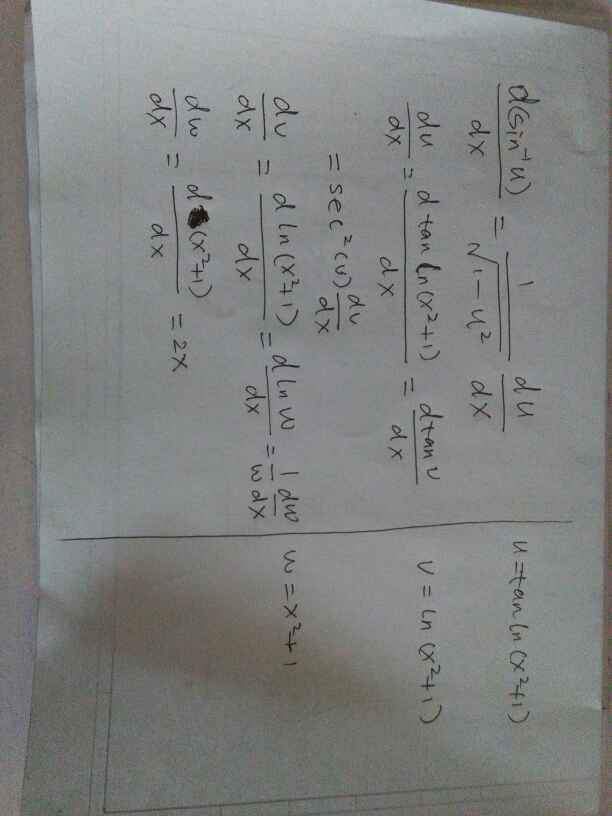 d(sin⁻¹u)/dx = 1/√(1-u²) du/dx u = tan ln(x²+1)
du/dx = d tan ln(x²+1)/dx = d tan v/dx v = ln(x²+1)
= sec²(v) dv/dx
dv/dx = d ln(x²+1)/dx = d ln w/dx = 1/w dw/dx w = x²+1
dw/dx = d(x²+1)/dx = 2x